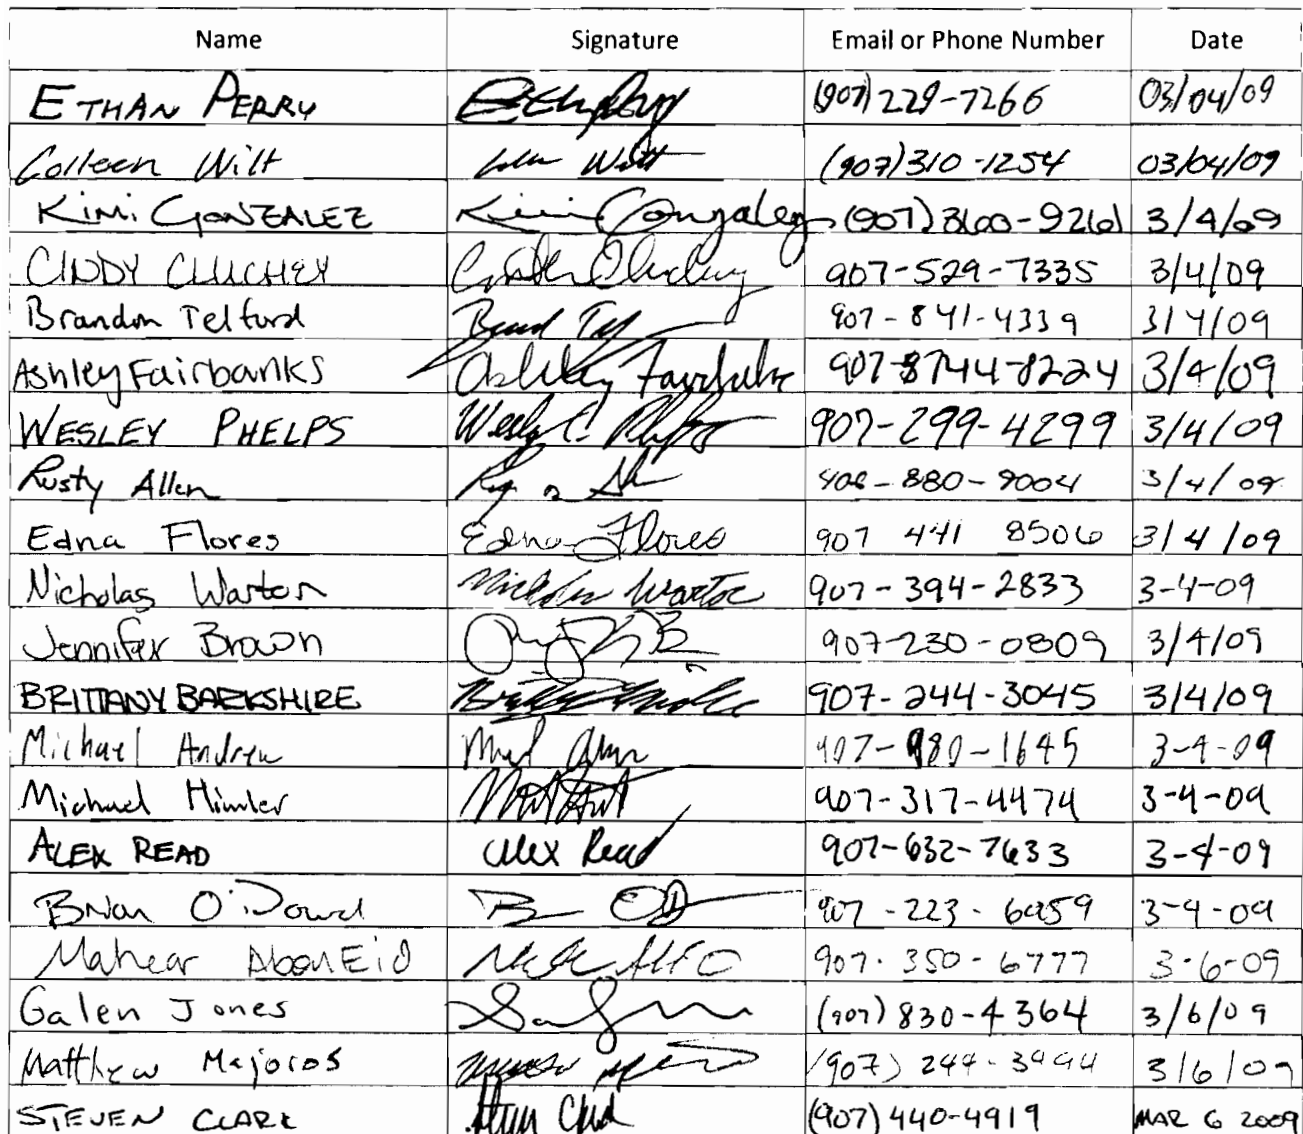 Name Signature Email or Phone Number Date
ETHAN PERRY (907) 229-7266 03/04/09
Colleen Wilt Wilt (907) 310-1254 03/04/09
Kimi GONZALEZ Kimi Gonzalez (907) 360-9261 3/4/09
CINDY CLUCHEY 907-529-7335 3/4/09
Brandon Telford 907-841-4339 3/4/09
Ashley Fairbanks Ashley Fairbanks 3/4/09
WESLEY PHELPS Wesley C. Phelps 907-299-4299 3/4/09
Rusty Allen 3/4/09
Edna Flores Edna Flores 907 441 8506 3/4/09
Nicholas Warton Nicholas Warton 907-394-2833 3-4-09
Jennifer Brown 907-230-0809 3/4/09
BRITTANY BARKSHIRE 907-244-3045 3/4/09
Michael Andrew 3-4-09
Michael Himler 907-317-4474 3-4-09
ALEX READ Alex Read 907-632-7633 3-4-09
Brian O'Dowd 3-4-09
Mahear AbouEid 907. 350-6777 3-6-09
Galen Jones (907) 830-4364 3/6/09
Matthew Majoros 3/6/09
STEVEN CLARK (907) 440-4919 MAR 6 2009